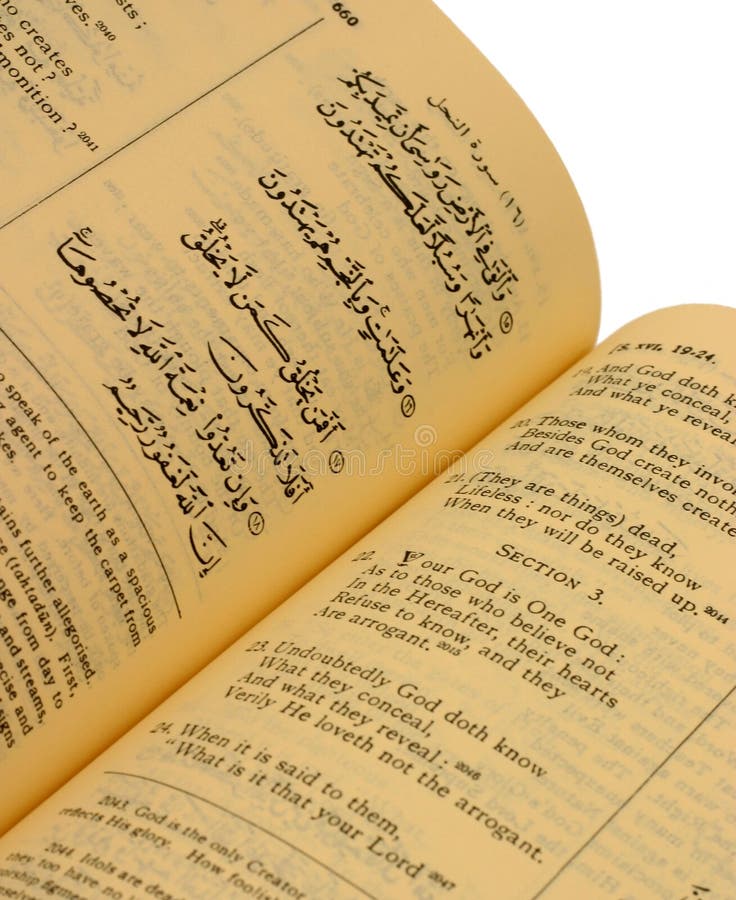 660
sts ;
ves. 2040
creates
not ?
monition ? 2041
(١٦) سورة النحل
وَأَلْقَىٰ فِي ٱلْأَرْضِ رَوَٰسِيَ أَن تَمِيدَ بِكُمْ
وَأَنْهَٰرًا وَسُبُلًا لَّعَلَّكُمْ تَهْتَدُونَ ١٥
وَعَلَٰمَٰتٍ وَبِٱلنَّجْمِ هُمْ يَهْتَدُونَ ١٦
أَفَمَن يَخْلُقُ كَمَن لَّا يَخْلُقُ
أَفَلَا تَذَكَّرُونَ ١٧
وَإِن تَعُدُّوا۟ نِعْمَةَ ٱللَّهِ لَا تُحْصُوهَا
إِنَّ ٱللَّهَ لَغَفُورٌ رَّحِيمٌ ١٨
speak of the earth as a spacious
agent to keep the carpet from
further allegorised.
(tahtadūn). First,
from day to
and streams,
and
[S. XVI. 19-24.
19. And God doth
What ye conceal,
And what ye reveal
20. Those whom they
Besides God create
And are themselves
21. (They are things) dead,
Lifeless : nor do they know
When they will be raised up. 2014
SECTION 3.
22. Your God is One God :
As to those who believe not
In the Hereafter, their hearts
Refuse to know, and they
Are arrogant. 2015
23. Undoubtedly God doth know
What they conceal,
And what they reveal : 2046
Verily He loveth not the arrogant.
24. When it is said to them,
"What is it that your Lord 2047
2043. God is the only Creator
reflects His glory. How
2044. Idols are
they too have no
dreamstime